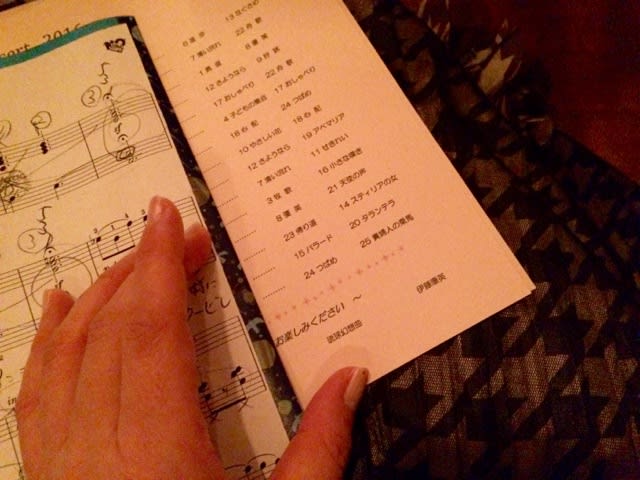 13 なぐさめ
6 進 歩 22 舟 歌
7 清い流れ 8 優 美
1 素 直 9 狩 猟
12 さようなら 22 舟 歌
17 おしゃべり 17 おしゃべり
4 子どもの集会 24 つばめ
18 心 配 18 心 配
10 やさしい花 19 アベマリア
12 さようなら 11 せきれい
7 清い流れ 16 小さな嘆き
3 牧 歌 21 天使の声
8 優 美 14 スティリアの女
23 帰り道 20 タランテラ
15 バラード 25 貴婦人の乗馬
24 つばめ
お楽しみください ～
琉球幻想曲 伊藤康英
2016